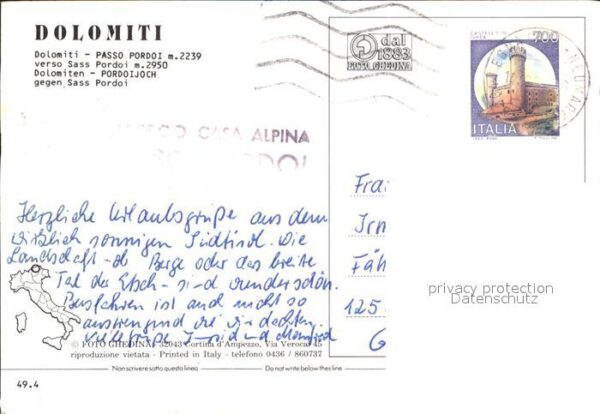 DOLOMITI
Dolomiti - PASSO PORDOI m.2239
verso Sass Pordoi m.2950
Dolomiten - PORDOIJOCH
gegen Sass Pordoi
dal
1883
FOTO GHEDINA
700
ITALIA
CASA ALPINA
Herzliche Urlaubsgrüße aus dem
wirklich sonnigen Südtirol. Die
Landschaft - ob Berge oder das breite
Tal der Etsch - sind wunderschön.
Busfahren ist auch nicht so
anstrengend wie wir dachten
viele Grüße und Manfred
© FOTO GHEDINA - 32043 Cortina d'Ampezzo, Via Verocai 45
riproduzione vietata - Printed in Italy - telefono 0436 / 860737
Non scrivere sotto questa linea
Do not write below thes line
49.4
Fra
Irm
Fäh
125
G
privacy protection
Datenschutz